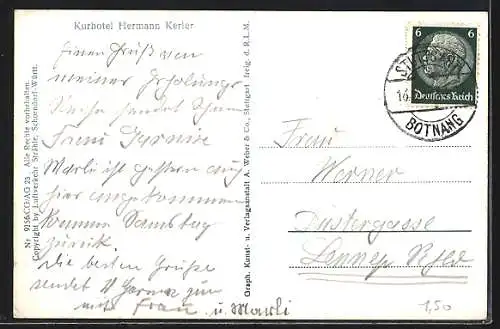 Kurhotel Hermann Kerler
Einen Gruß von
meiner Erholungs
Reise sendet Ihnen
Frau
Marli ist gestern auch
hier angekommen
komme Samstag
zurück
die besten Grüße
sendet
Frau u. Marli
Nr. 9156 CCG/AG 23 Alle Rechte vorbehalten.
Copyright by Luftverkehr Strähle, Schorndorf-Württ.
Graph. Kunst- u. Verlagsanstalt A. Weber & Co., Stuttgart freig. d. R.L.M.
6 6
Deutsches Reich
STUTTGART
16.
BOTNANG
Frau
Werner
Düstergasse
Lennep Rhld
1,50